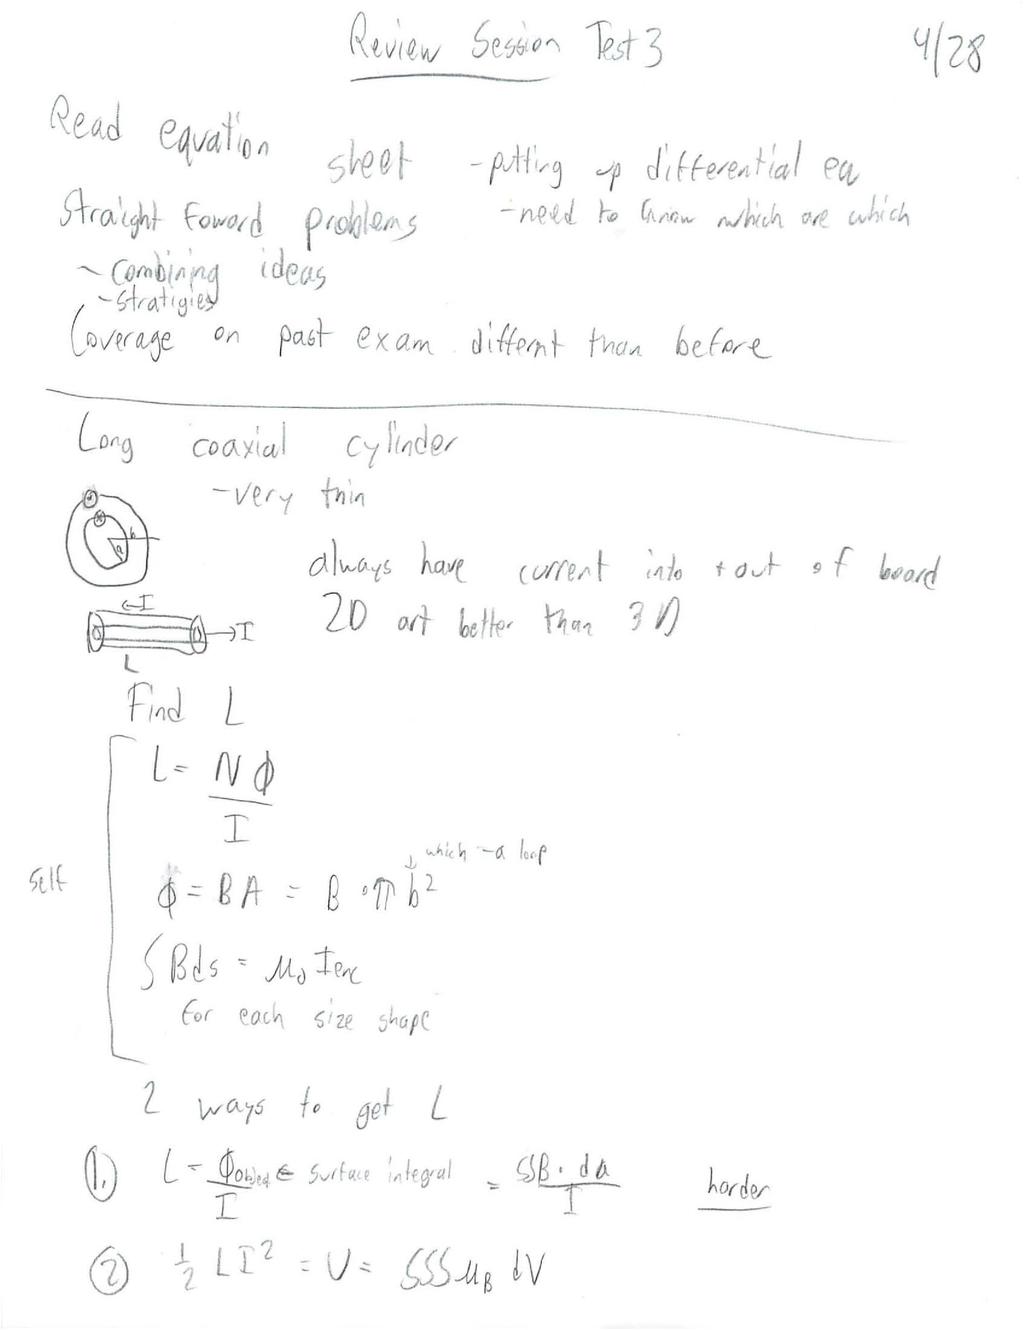 Review Session Test 3 4/28
Read equation sheet - putting up differential eq
Straight Foward problems - need to know which are which
- Combining ideas
- stratigies
Coverage on past exam differnt than before
Long coaxial cylinder
- very thin
a b
always have current into + out of board
2D art better than 3D
← I
→ I
L
Find L
L = NΦ / I
↓ which - a loop
Self
Φ = BA = B · π b²
∫ B ds = μ₀ Ienc
for each size shape
2 ways to get L
①. L = Φ ← surface integral / I = ∫∫ B · da / I harder
② ½ L I² = U = ∫∫∫ μB dV